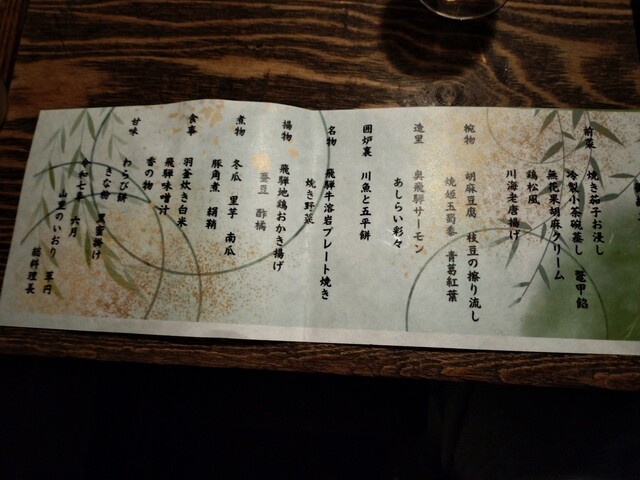 前菜
焼き茄子お浸し
冷製小茶碗蒸し 鼈甲餡
無花果胡麻クリーム
鶏松風
川海老唐揚げ
椀物
胡麻豆腐 枝豆の擦り流し
焼姫玉蜀黍 青葛紅葉
造里
奥飛騨サーモン
あしらい彩々
囲炉裏
川魚と五平餅
名物
飛騨牛溶岩プレート焼き
焼き野菜
揚物
飛騨地鶏おかき揚げ
蚕豆 酢橘
煮物
冬瓜 里芋 南瓜
豚角煮 絹鞘
食事
羽釜炊き白米
飛騨味噌汁
香の物
甘味
わらび餅
きな粉 黒蜜掛け
令和七年 六月
山里のいおり 草円
総料理長